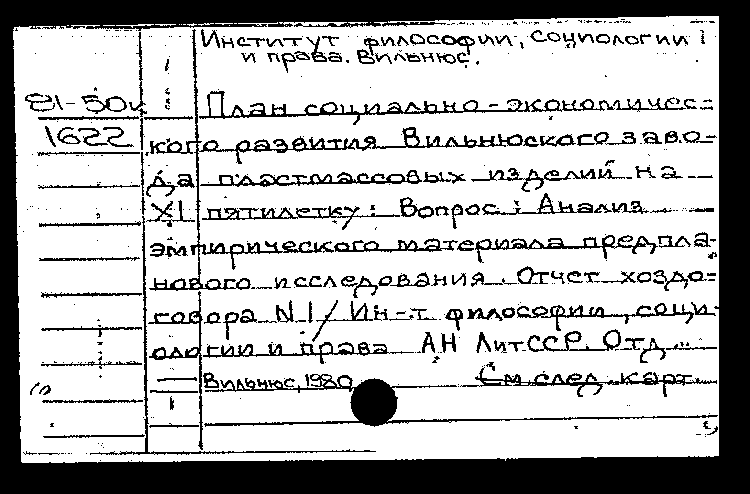 Институт философии, социологии
и права. Вильнюс.
81-50к
1622
План социально-экономичес-
кого развития Вильнюского заво-
да пластмассовых изделий на
XI пятилетку: Вопрос: Анализ
эмпирического материала предпла-
нового исследования. Отчет хоздо-
говора N 1/ Ин-т философии, соци-
ологии и права АН ЛитССР. Отд...
Вильнюс, 1980
См след. карт.